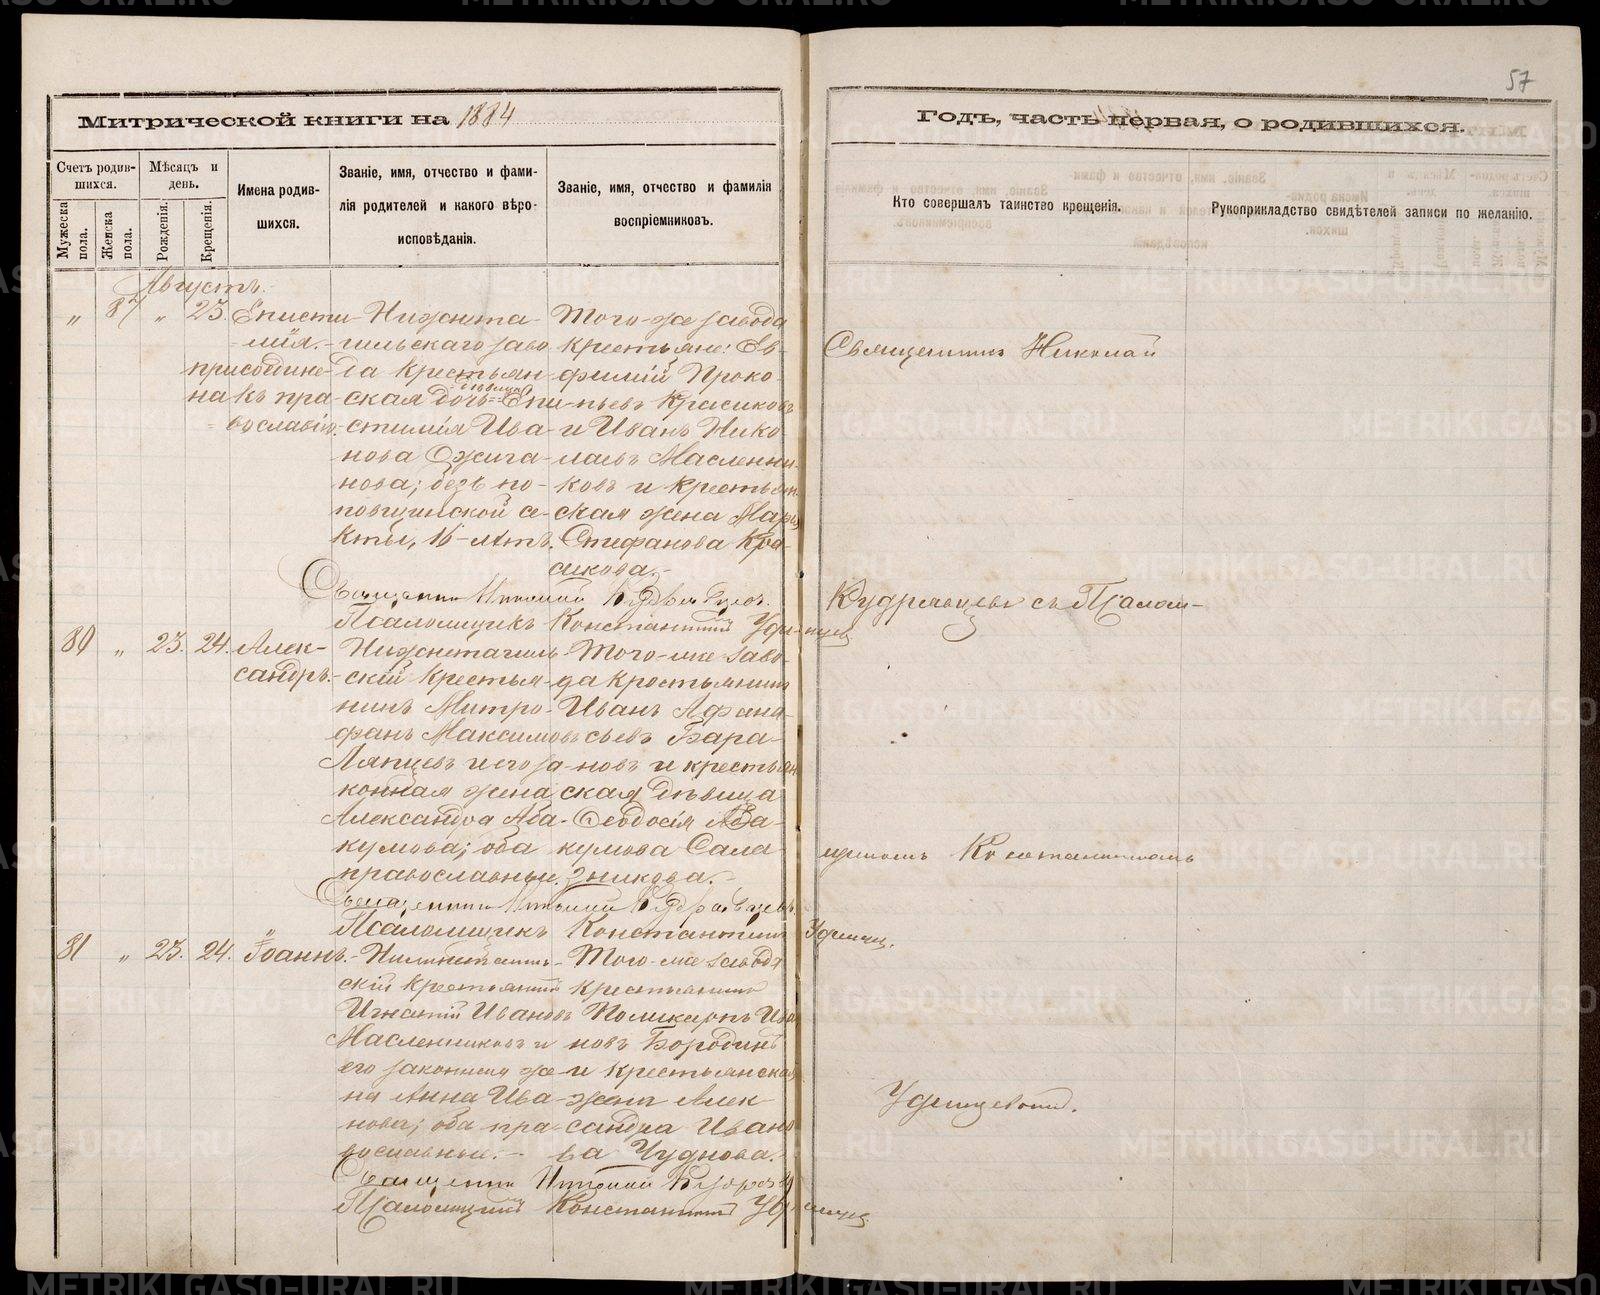 57
Митрической книги на 1884
Годъ, часть первая, о родившихся.
Счетъ родив-
шихся.
Мужеска пола.
Женска пола.
Мѣсяцъ и
день.
Рожденія.
Крещенія.
Имена родив-
шихся.
Званіе, имя, отчество и фами-
лія родителей и какого вѣро-
исповѣданія.
Званіе, имя, отчество и фамилія
воспріемниковъ.
Кто совершалъ таинство крещенія.
Рукоприкладство свидѣтелей записи по желанію.
Августъ.
„ 87 „ 23.
Еписти-
мія.-
присоедине-
на къ пра-
вославію.
Нижнета-
гильскаго заво
да крестьян
ская дочь дѣвица Епи-
стимія Ива-
нова Ожига-
нова; безъ по-
повщинской се-
кты, 16-лѣтъ.
Того-же завода
крестьяне: Ев-
фимій Проко-
пьевъ Красиковъ
и Иванъ Нико-
лаевъ Масленни-
ковъ и крестьян
ская жена Марья
Стефанова Кра-
сикова.-
Священникъ Николай
Кудрявцевъ съ Псалом-
щикомъ Константиномъ
Удинцевымъ.
Священникъ Николай Кудрявцевъ.
Псаломщикъ Константинъ Удинцевъ
80 „ 23. 24.
Алек-
сандръ.-
Нижнетагиль-
скій крестья-
нинъ Митро-
фанъ Максимовъ
Ляпцевъ и его за-
конная жена
Александра Аба-
кумова; оба
православные.
Того-же заво-
да крестьянинъ
Иванъ Афана-
сьевъ Бара-
новъ и крестьян
ская дѣвица
Феодосія Аба-
кумова Сала-
зникова.-
Священникъ Николай Кудрявцевъ.
Псаломщикъ Константинъ Удинцев.
81 „ 23. 24.
Іоаннъ.-
скій крестьянинъ
Игнатій Ивановъ
Масленниковъ и
его законная же-
на Анна Ива-
нова; оба пра-
вославные.-
Того-же завода
крестьянинъ
Поликарпъ Ива
новъ Бородинъ
и крестьянская
жена Алек-
сандра Ивано
ва Чуднова.
Священникъ Николай
Псаломщикъ Константинъ Удинцев
METRIKI.GASO-URAL.RU